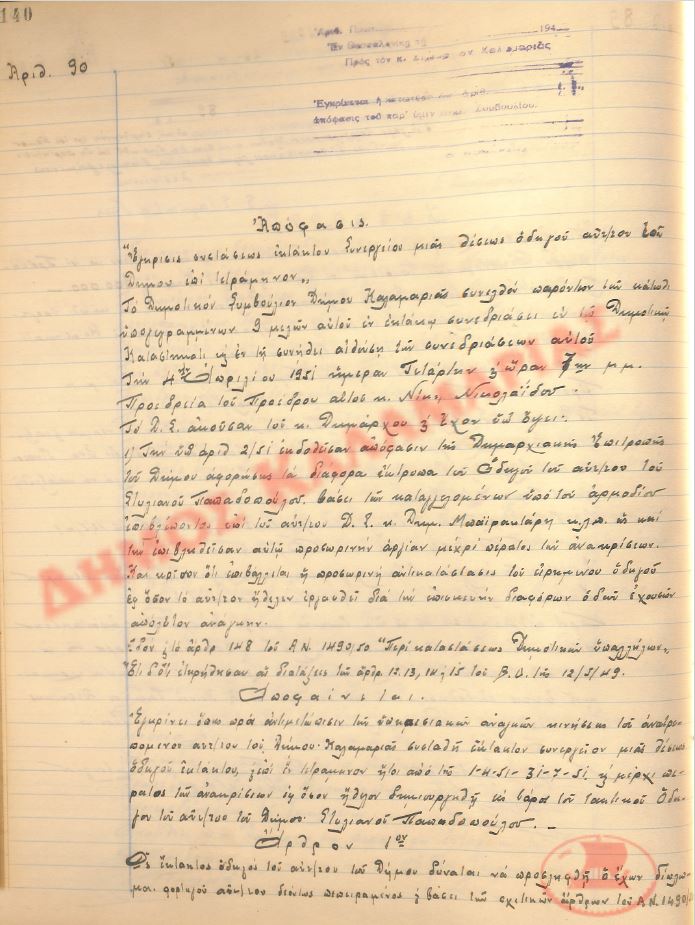 140
Ἀριθ. 90
Ἀριθ. Πρωτ. 194
Ἐν Θεσσαλονίκῃ τῇ
Πρὸς τὸν κ. Δήμαρχον Καλαμαριᾶς
Ἐγκρίνεται ἡ ἀριθ.
ἀπόφασις τοῦ παρ' ὑμῖν Συμβουλίου.
Ἀπόφασις.
"Ἔγκρισις συστάσεως ἐκτάκτου Συνεργείου μιᾶς θέσεως ὁδηγοῦ αὐτ/του τοῦ
Δήμου ἐπὶ τετράμηνον„
Τὸ Δημοτικὸν Συμβούλιον Δήμου Καλαμαριᾶς συνελθὸν παρόντων τῶν κάτωθι
ὑπογεγραμμένων 9 μελῶν αὐτοῦ ἐν ἐκτάκτῳ συνεδριάσει ἐν τῷ Δημοτικῷ
Καταστήματι κ ἐν τῇ συνήθει αἰθούσῃ τῶν συνεδριάσεων αὐτοῦ
Τὴν 4ην Ἀπριλίου 1951 ἡμέραν Τετάρτην κ ὥραν 7ην μ.μ.
Προεδρείᾳ τοῦ Προέδρου αὐτοῦ κ. Νικ. Νικολαΐδου.
Τὸ Δ.Σ. ἀκοῦσαν τοῦ κ. Δημάρχου κ ἔχον ὑπ' ὄψει.
1) Τὴν ὑπ' ἀριθ 2/51 ἐκδοθεῖσαν ἀπόφασιν τῆς Δημαρχιακῆς Ἐπιτροπῆς
τοῦ Δήμου ἀφορώσης τὰ διάφορα ἔκτροπα τοῦ Ὁδηγοῦ τοῦ αὐτ/του τοῦ
Στυλιανοῦ Παπαδοπούλου, βάσει τῶν καταγγελομένων ὑπὸ τοῦ ἁρμοδίου
ἐπιβλέποντος ἐπὶ τοῦ αὐτ/του Δ.Σ. κ. Δημ. Μπαϊρακτάρη κ.λ.π. ὡς καὶ
τὴν ἐπιβληθεῖσαν αὐτῷ προσωρινὴν ἀργίαν μέχρι πέρατος τῶν ἀνακρίσεων.
Καὶ κρῖνον ὅτι ἐπιβάλλεται ἡ προσωρινὴ ἀντικατάστασις τοῦ εἰρημένου ὁδηγοῦ
ἐφ' ὅσον τὸ αὐτ/τον ἤθελεν ἐργασθεῖ διὰ τὴν ἐπισκευὴν διαφόρων ὁδῶν ἐχουσῶν
ἀπόλυτον ἀνάγκην.
Ἰδὸν κ τὸ ἄρθρ 148 τοῦ Α.Ν. 1490/50 "Περὶ καταστάσεως Δημοτικῶν ὑπαλλήλων„
Ἔτι δ' ὅτι ἐτηρήθησαν αἱ διατάξεις τῶν ἄρθρ. 12.13, 14 κ 15 τοῦ Β.Δ. τῆς 12/5/49.
Ἀποφαίνεται.
Ἐγκρίνει ὅπως πρὸς ἀντιμετώπισιν τῶν ὑπηρεσιακῶν ἀναγκῶν κινήσεως τοῦ ἀνατρε-
πομένου αὐτ/του τοῦ Δήμου Καλαμαριᾶς συσταθῇ ἔκτακτον συνεργεῖον μιᾶς θέσεως
ὁδηγοῦ ἐκτάκτου, κ ἐπὶ ἓν τετράμηνον ἤτοι ἀπὸ τῆς 1-4-51- 31-7-51, κ μέχρι πέ-
ρατος τῶν ἀνακρίσεων ἐφ' ὅσον ἤθελον δημιουργηθῇ εἰς βάρος τοῦ τακτικοῦ Ὁδη-
γοῦ τοῦ αὐτ/του τοῦ Δήμου Στυλιανοῦ Παπαδοπούλου. –
Ἄρθρον 1ον
Ὡς ἔκτακτος ὁδηγὸς τοῦ αὐτ/του τοῦ Δήμου δύναται νὰ προσληφθῇ ὁ ἔχων δίπλω-
μα φορτηγοῦ αὐτ/του δεόντως πεπειραμένος κ βάσει τῶν σχετικῶν ἄρθρων τοῦ Α.Ν. 1490/50
ΔΗΜΟΣ ΚΑΛΑΜΑΡΙΑΣ